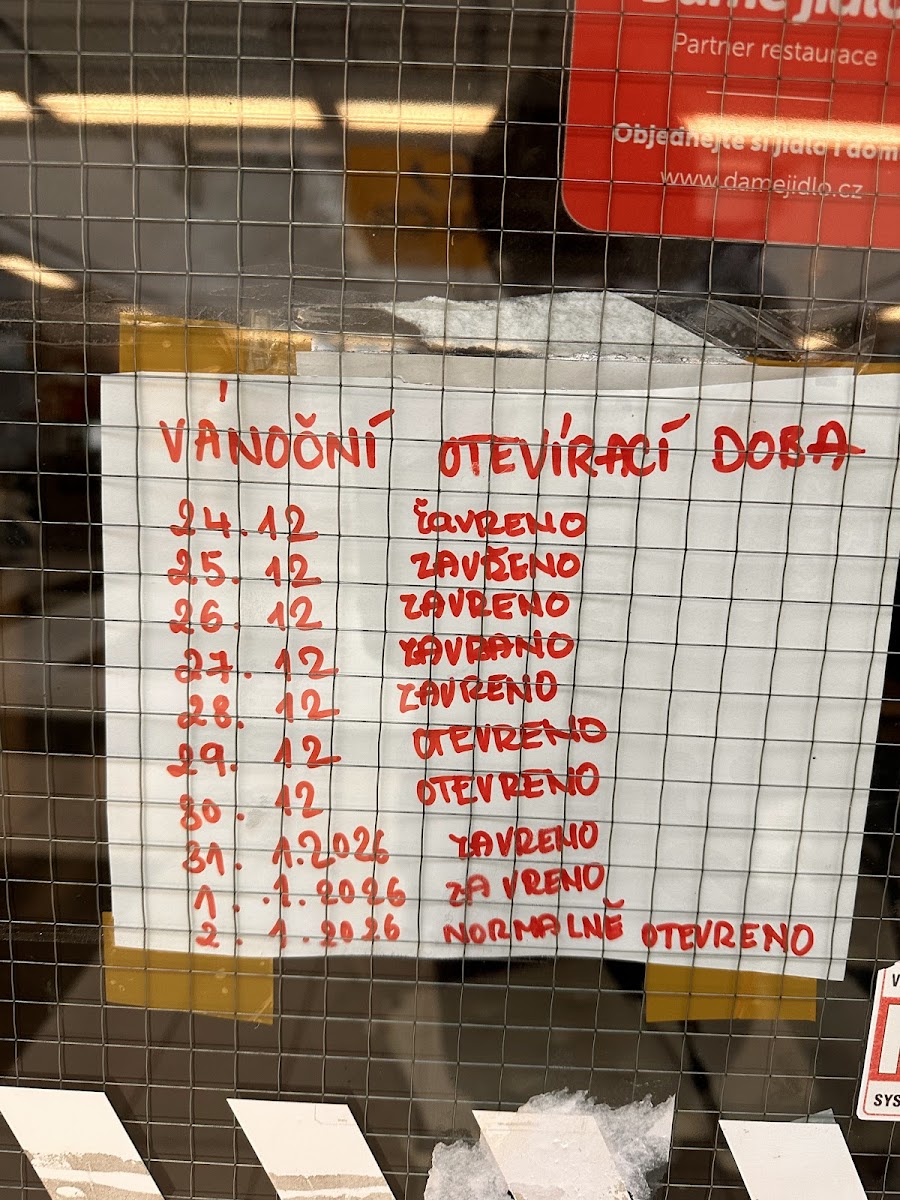 Dáme jídlo
Partner restaurace
Objednejte si jídlo i dom
www.damejidlo.cz
VÁNOČNÍ OTEVÍRACÍ DOBA
24.12 ZAVRENO
25. 12 ZAVŘENO
26. 12 ZAVRENO
27. 12 ZAVRANO
28. 12 ZAVRENO
29. 12 OTEVRENO
30. 12 OTEVRENO
31. 1.2026 ZAVRENO
1. 1.2026 ZAVRENO
2. 1.2026 NORMALNĚ OTEVRENO
SYS